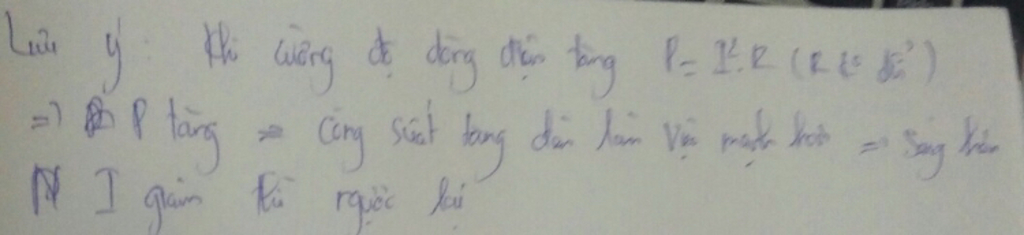 Lưu ý: Khi cường độ dòng điện tăng P = I².R (R k° đổi)
=> P tăng => Công suất tăng đèn làm việc mạnh hơn => Sáng hơn
N I giảm thì ngược lại